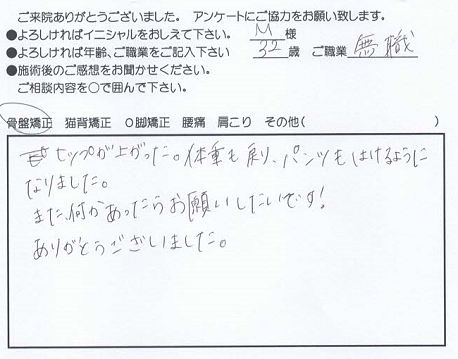 ご来院ありがとうございました。 アンケートにご協力をお願い致します。
●よろしければイニシャルをおしえて下さい。 M 様
●よろしければ年齢、ご職業をご記入下さい 32 歳 ご職業 無職
●施術後のご感想をお聞かせください。
ご相談内容を○で囲んで下さい。
骨盤矯正 猫背矯正 O脚矯正 腰痛 肩こり その他( )
ヒップが上がった。体重も戻り、パンツもはけるように
なりました。
また、何かあったらお願いしたいです!
ありがとうございました。